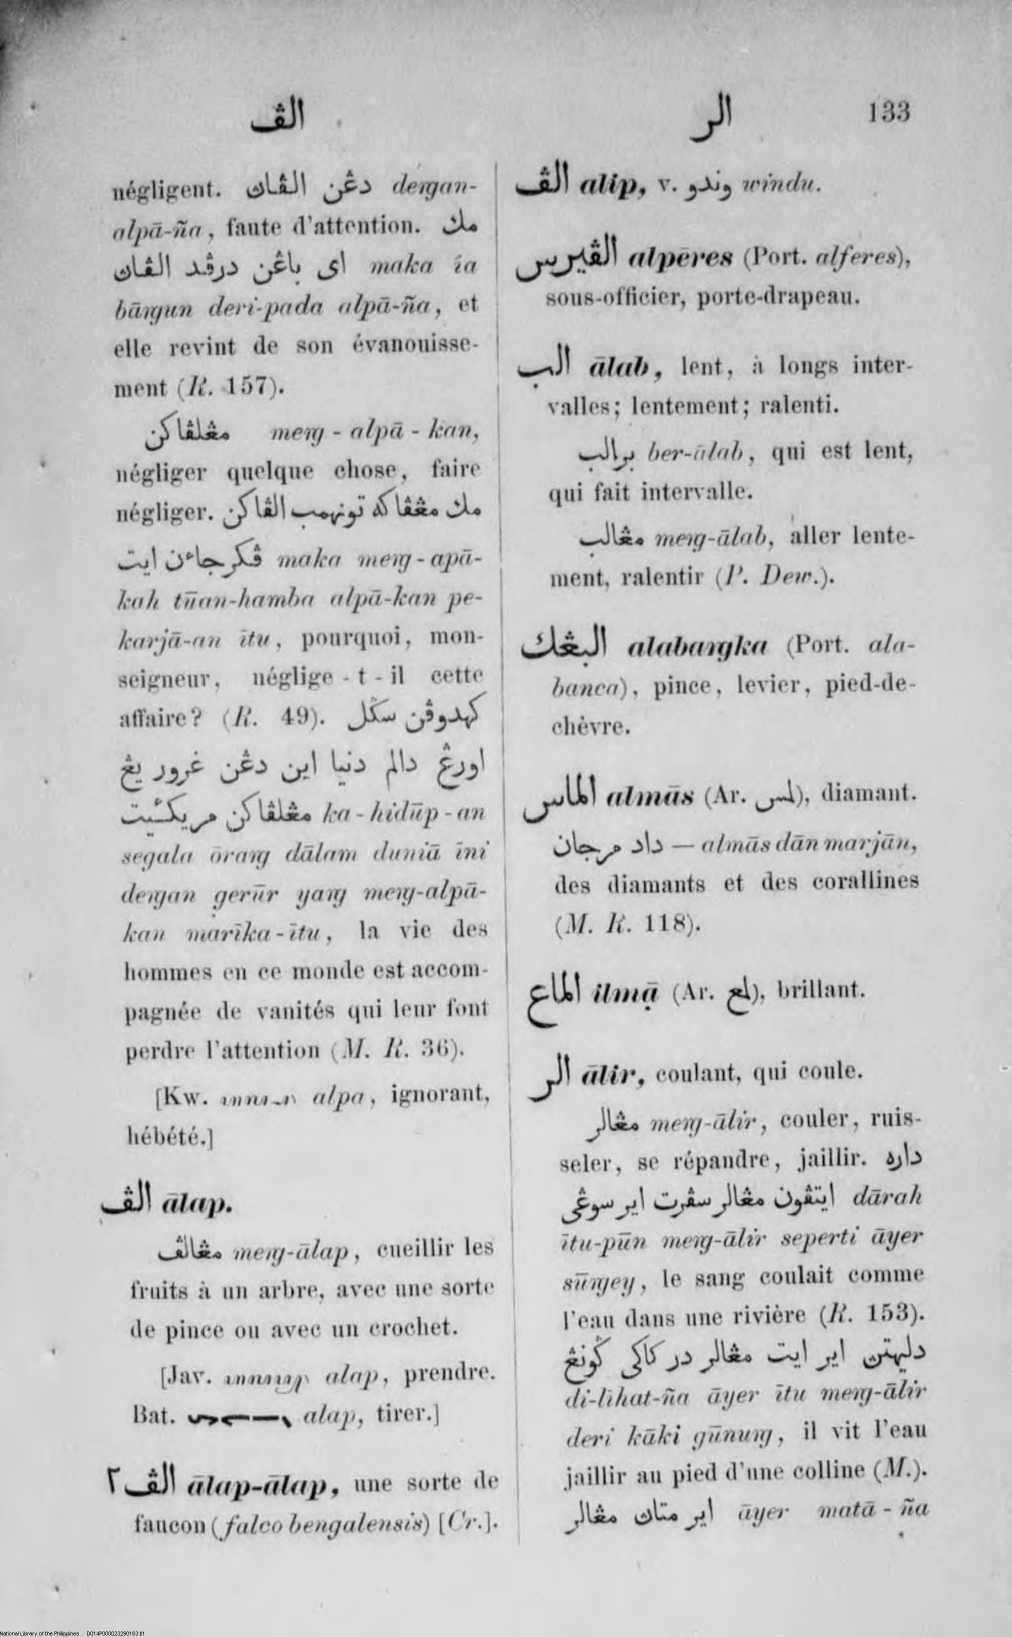 الڤ
الر 133
négligent. دڠن الڤاڽ deṅgan-
alpā-ña, faute d'attention. مك
اى باڠن درڤد الڤاڽ maka ia
bāṅgun deri-pada alpā-ña, et
elle revint de son évanouisse-
ment (R. 157).
مڠلڤاكن meṅg-alpā-kan,
négliger quelque chose, faire
négliger. مك مڠڤاكه تونهمب الڤاكن
ڤكرجاءن ايت maka meṅg-apā-
kah tūan-hamba alpā-kan pe-
karjā-an ītu, pourquoi, mon-
seigneur, néglige-t-il cette
affaire? (R. 49). كهدوڤن سڬل
اورڠ دالم دنيا اين دڠن غرور يڠ
مڠلڤاكن مريكئيت ka-hidūp-an
segala ōraṅg dālam duniā īni
deṅgan gerūr yaṅg meṅg-alpā-
kan marīka-ītu, la vie des
hommes en ce monde est accom-
pagnée de vanités qui leur font
perdre l'attention (M. R. 36).
[Kw. alpa, ignorant,
hébété.]
الڤ ālap.
مڠالڤ meṅg-ālap, cueillir les
fruits à un arbre, avec une sorte
de pince ou avec un crochet.
[Jav. alap, prendre.
Bat. alap, tirer.]
الڤ٢ ālap-ālap, une sorte de
faucon (falco bengalensis) [Cr.].
الڤ alip, v. وندو windu.
الڤيرس alpēres (Port. alferes),
sous-officier, porte-drapeau.
الب ālab, lent, à longs inter-
valles; lentement; ralenti.
برالب ber-ālab, qui est lent,
qui fait intervalle.
مڠالب meṅg-ālab, aller lente-
ment, ralentir (P. Dew.).
البڠك alabaṅgka (Port. ala-
banca), pince, levier, pied-de-
chèvre.
الماس almās (Ar. لمس), diamant.
داد مرجان — almās dān marjān,
des diamants et des corallines
(M. R. 118).
الماع ilmạ̄ (Ar. لمع), brillant.
الر ālir, coulant, qui coule.
مڠالر meṅg-ālir, couler, ruis-
seler, se répandre, jaillir. داره
ايتڤون مڠالر سڤرت اير سوڠى dārah
ītu-pūn meṅg-ālir seperti āyer
sūṅgey, le sang coulait comme
l'eau dans une rivière (R. 153).
دليهتن اير ايت مڠالر در كاكى ڬونڠ
di-līhat-ña āyer ītu meṅg-ālir
deri kāki gūnuṅg, il vit l'eau
jaillir au pied d'une colline (M.).
اير متاڽ مڠالر āyer matā-ña
National Library of the Philippines